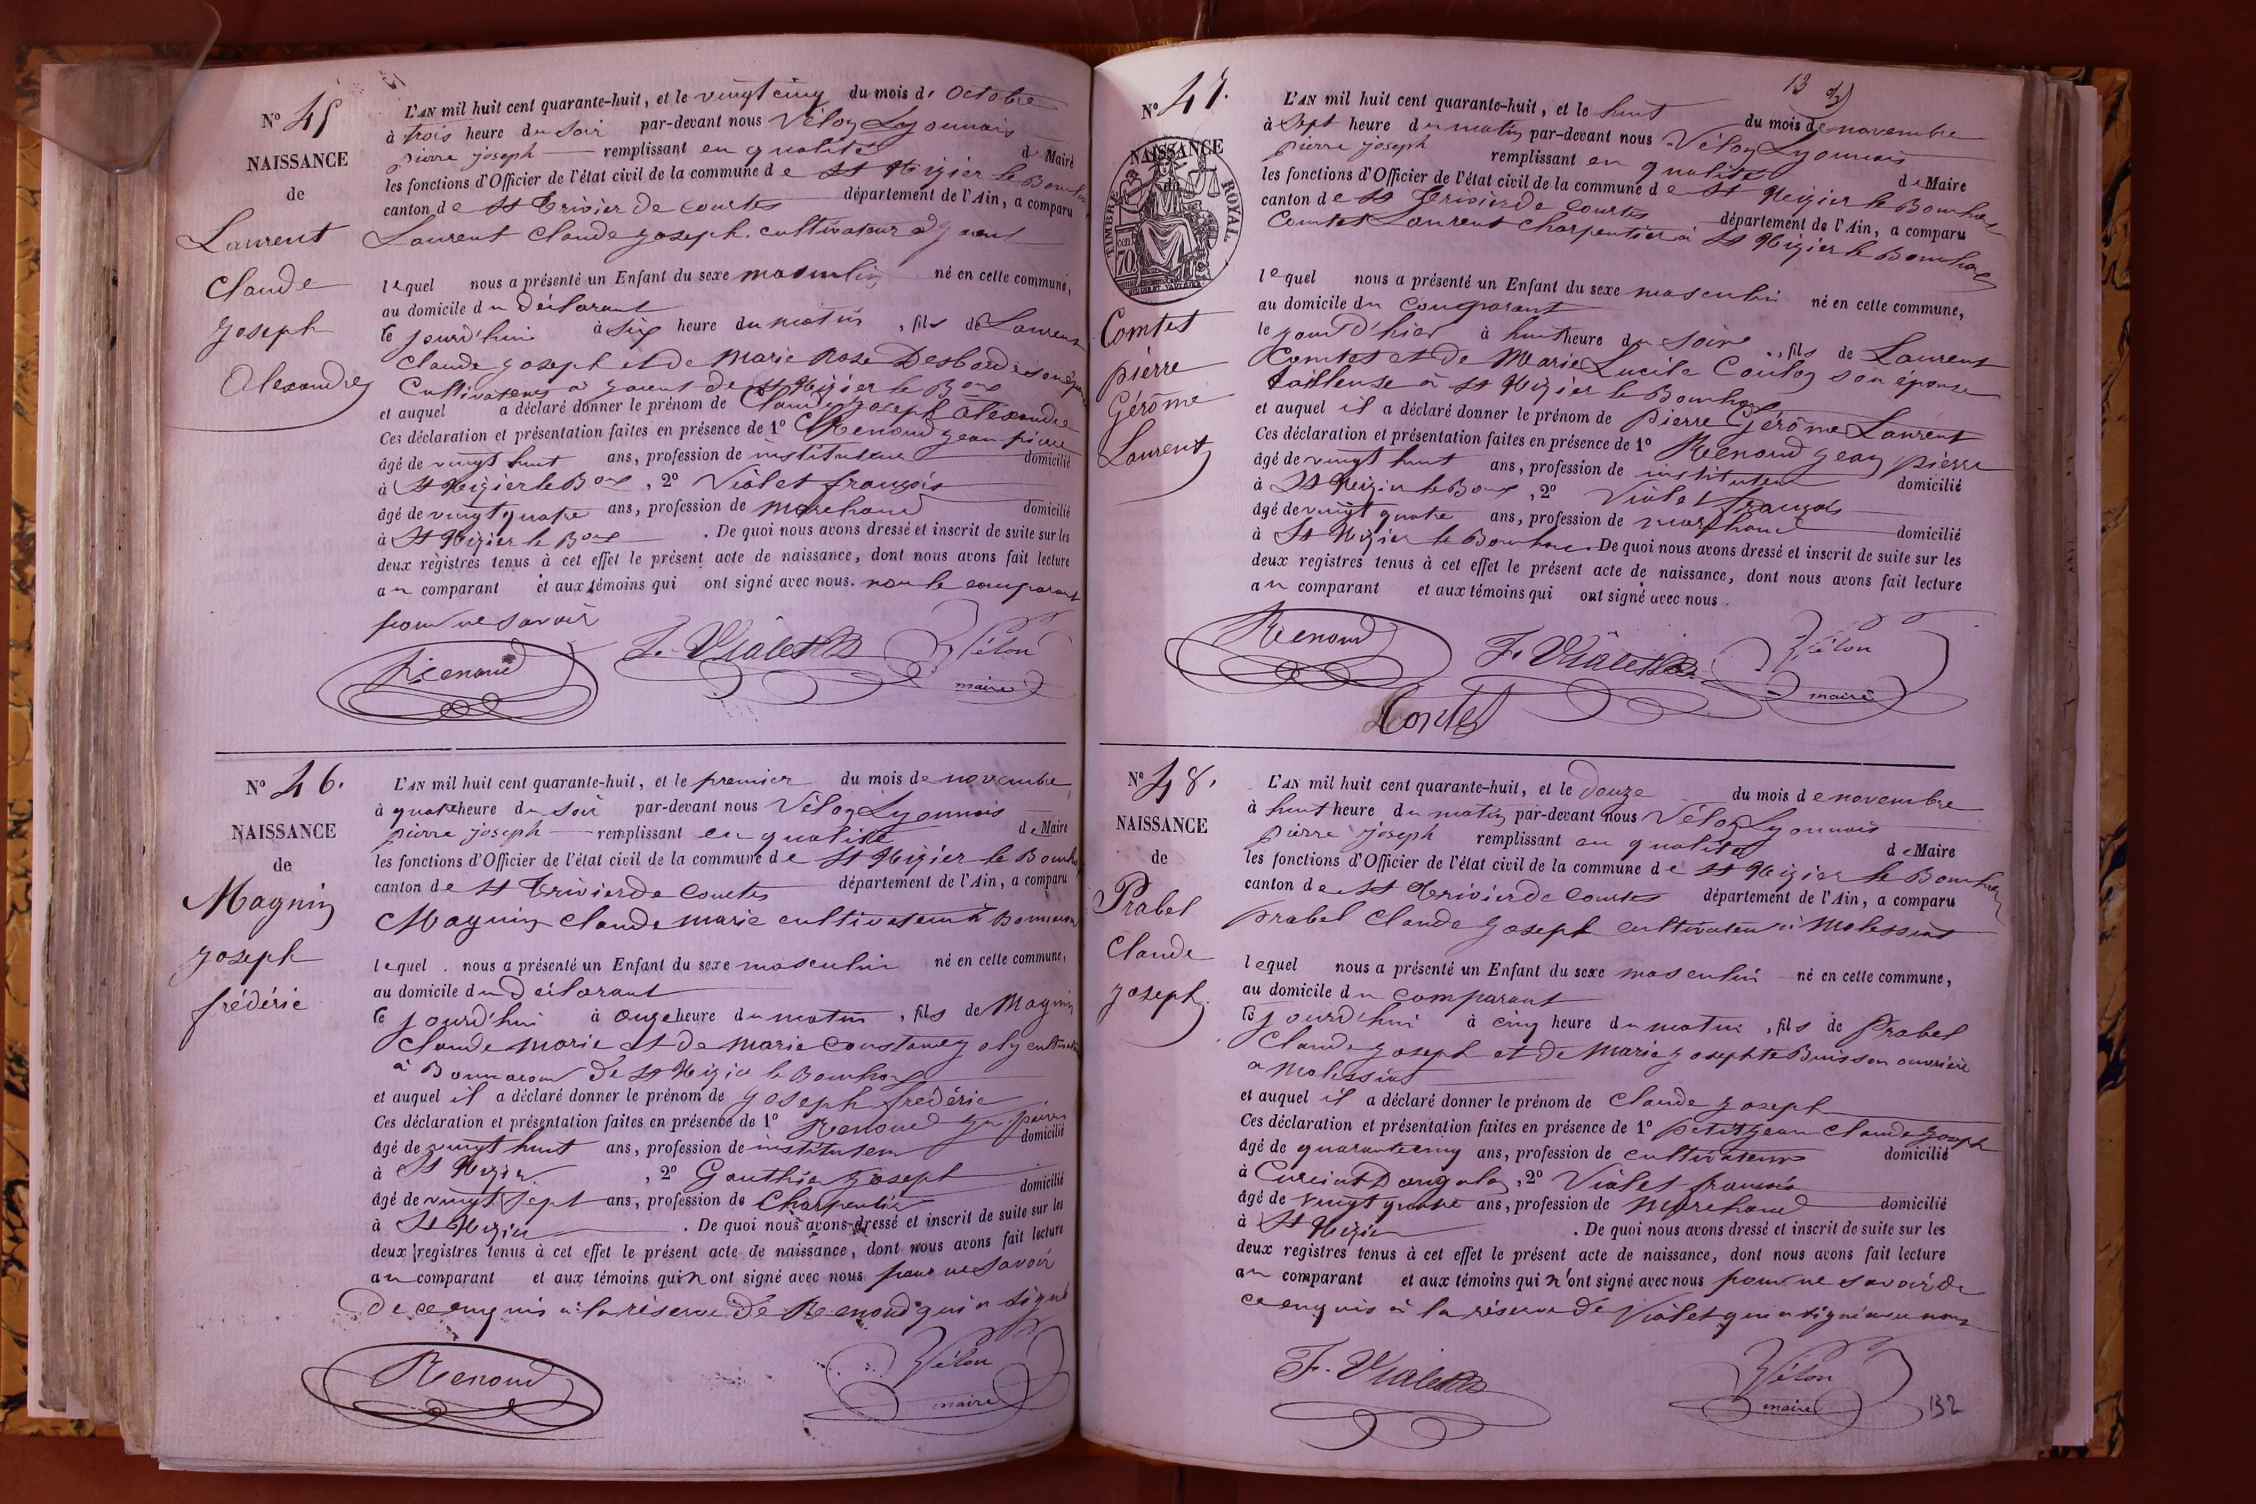 N° 45
NAISSANCE
de
Laurent
Claude
Joseph
Alexandre
L'AN mil huit cent quarante-huit, et le vingt cinq du mois de Octobre
à trois heure du soir par-devant nous Vélon Lyonnais
pierre joseph remplissant en qualité de Maire
les fonctions d'Officier de l'état civil de la commune de St Nizier le Bouchoux
canton de St Trivier de Courtes département de l'Ain, a comparu
Laurent Claude Joseph cultivateur
lequel nous a présenté un Enfant du sexe masculin né en cette commune,
au domicile du Déclarant
ce jourd'hui à six heure du matin, fils de Laurent
Claude Joseph et de Marie Rose Desbordes son épouse
Cultivateurs de St Nizier le Boux
et auquel a déclaré donner le prénom de Claude Joseph Alexandre
Ces déclaration et présentation faites en présence de 1° Renoud Jean pierre
âgé de vingt huit ans, profession de instituteur domicilié
à St Nizier le Boux, 2° Violet françois
âgé de vingt quatre ans, profession de Marchand domicilié
à St Nizier le Boux. De quoi nous avons dressé et inscrit de suite sur les
deux registres tenus à cet effet le présent acte de naissance, dont nous avons fait lecture
au comparant et aux témoins qui ont signé avec nous. non le comparant
pour ne savoir
Renoud F. Violet Vélon
maire
N° 46.
NAISSANCE
de
Magnin
Joseph
frédéric
L'AN mil huit cent quarante-huit, et le premier du mois de novembre
à quatre heure du soir par-devant nous Vélon Lyonnais
pierre joseph remplissant en qualité de Maire
les fonctions d'Officier de l'état civil de la commune de St Nizier le Bouchoux
canton de St Trivier de Courtes département de l'Ain, a comparu
Magnin Claude Marie cultivateur à
lequel nous a présenté un Enfant du sexe masculin né en cette commune,
au domicile du Déclarant
ce jourd'hui à onze heure du matin, fils de Magnin
Claude Marie et de Marie
à de St Nizier le Bouchoux
et auquel il a déclaré donner le prénom de Joseph frédéric
Ces déclaration et présentation faites en présence de 1° Renoud Jn pierre
âgé de vingt huit ans, profession de instituteur domicilié
à St Nizier, 2° Gauthier Joseph
âgé de vingt sept ans, profession de Charpentier domicilié
à St Nizier. De quoi nous avons dressé et inscrit de suite sur les
deux registres tenus à cet effet le présent acte de naissance, dont nous avons fait lecture
au comparant et aux témoins qui n'ont signé avec nous pour ne savoir
de ce enquis à la réserve de Renoud qui a signé
Renoud Vélon
maire
13
N° 47.
NAISSANCE
du
TIMBRE ROYAL
70
Comtet
pierre
Gérôme
Laurent
L'AN mil huit cent quarante-huit, et le huit du mois de novembre
à Sept heure du matin par-devant nous Vélon Lyonnais
pierre joseph remplissant en qualité de Maire
les fonctions d'Officier de l'état civil de la commune de St Nizier le Bouchoux
canton de St Trivier de Courtes département de l'Ain, a comparu
Comtet Laurent Charpentier à St Nizier le Bouchoux
lequel nous a présenté un Enfant du sexe masculin né en cette commune,
au domicile du comparant
le jour d'hier à huit heure du soire, fils de Laurent
Comtet et de Marie Lucile Coulon son épouse
tailleuse à St Nizier le Bouchoux
et auquel il a déclaré donner le prénom de pierre Gérôme Laurent
Ces déclaration et présentation faites en présence de 1° Renoud Jean pierre
âgé de vingt huit ans, profession de instituteur domicilié
à St Nizier le Boux, 2° Violet françois
âgé de vingt quatre ans, profession de marchand domicilié
à St Nizier le Bouchoux. De quoi nous avons dressé et inscrit de suite sur les
deux registres tenus à cet effet le présent acte de naissance, dont nous avons fait lecture
au comparant et aux témoins qui ont signé avec nous.
Renoud F. Violet Vélon
maire
Comtet
N° 48.
NAISSANCE
de
Prabel
Claude
Joseph.
L'AN mil huit cent quarante-huit, et le Douze du mois de novembre
à huit heure du matin par-devant nous Vélon Lyonnais
pierre joseph remplissant en qualité de Maire
les fonctions d'Officier de l'état civil de la commune de St Nizier le Bouchoux
canton de St Trivier de Courtes département de l'Ain, a comparu
prabel Claude Joseph cultivateur à Molissiat
lequel nous a présenté un Enfant du sexe masculin né en cette commune,
au domicile du comparant
ce jourd'hui à cinq heure du matin, fils de Prabel
Claude Joseph et de Marie Josephte Buisson ouvrière
a Molissiat
et auquel il a déclaré donner le prénom de Claude Joseph
Ces déclaration et présentation faites en présence de 1° petitjean Claude Joseph
âgé de quarante cinq ans, profession de cultivateur domicilié
à Curciat Dongalon, 2° Violet françois
âgé de vingt quatre ans, profession de Marchand domicilié
à St Nizier. De quoi nous avons dressé et inscrit de suite sur les
deux registres tenus à cet effet le présent acte de naissance, dont nous avons fait lecture
au comparant et aux témoins qui n'ont signé avec nous pour ne savoir de
ce enquis à la réserve de Violet qui a signé avec nous
F. Violet Vélon
maire
132